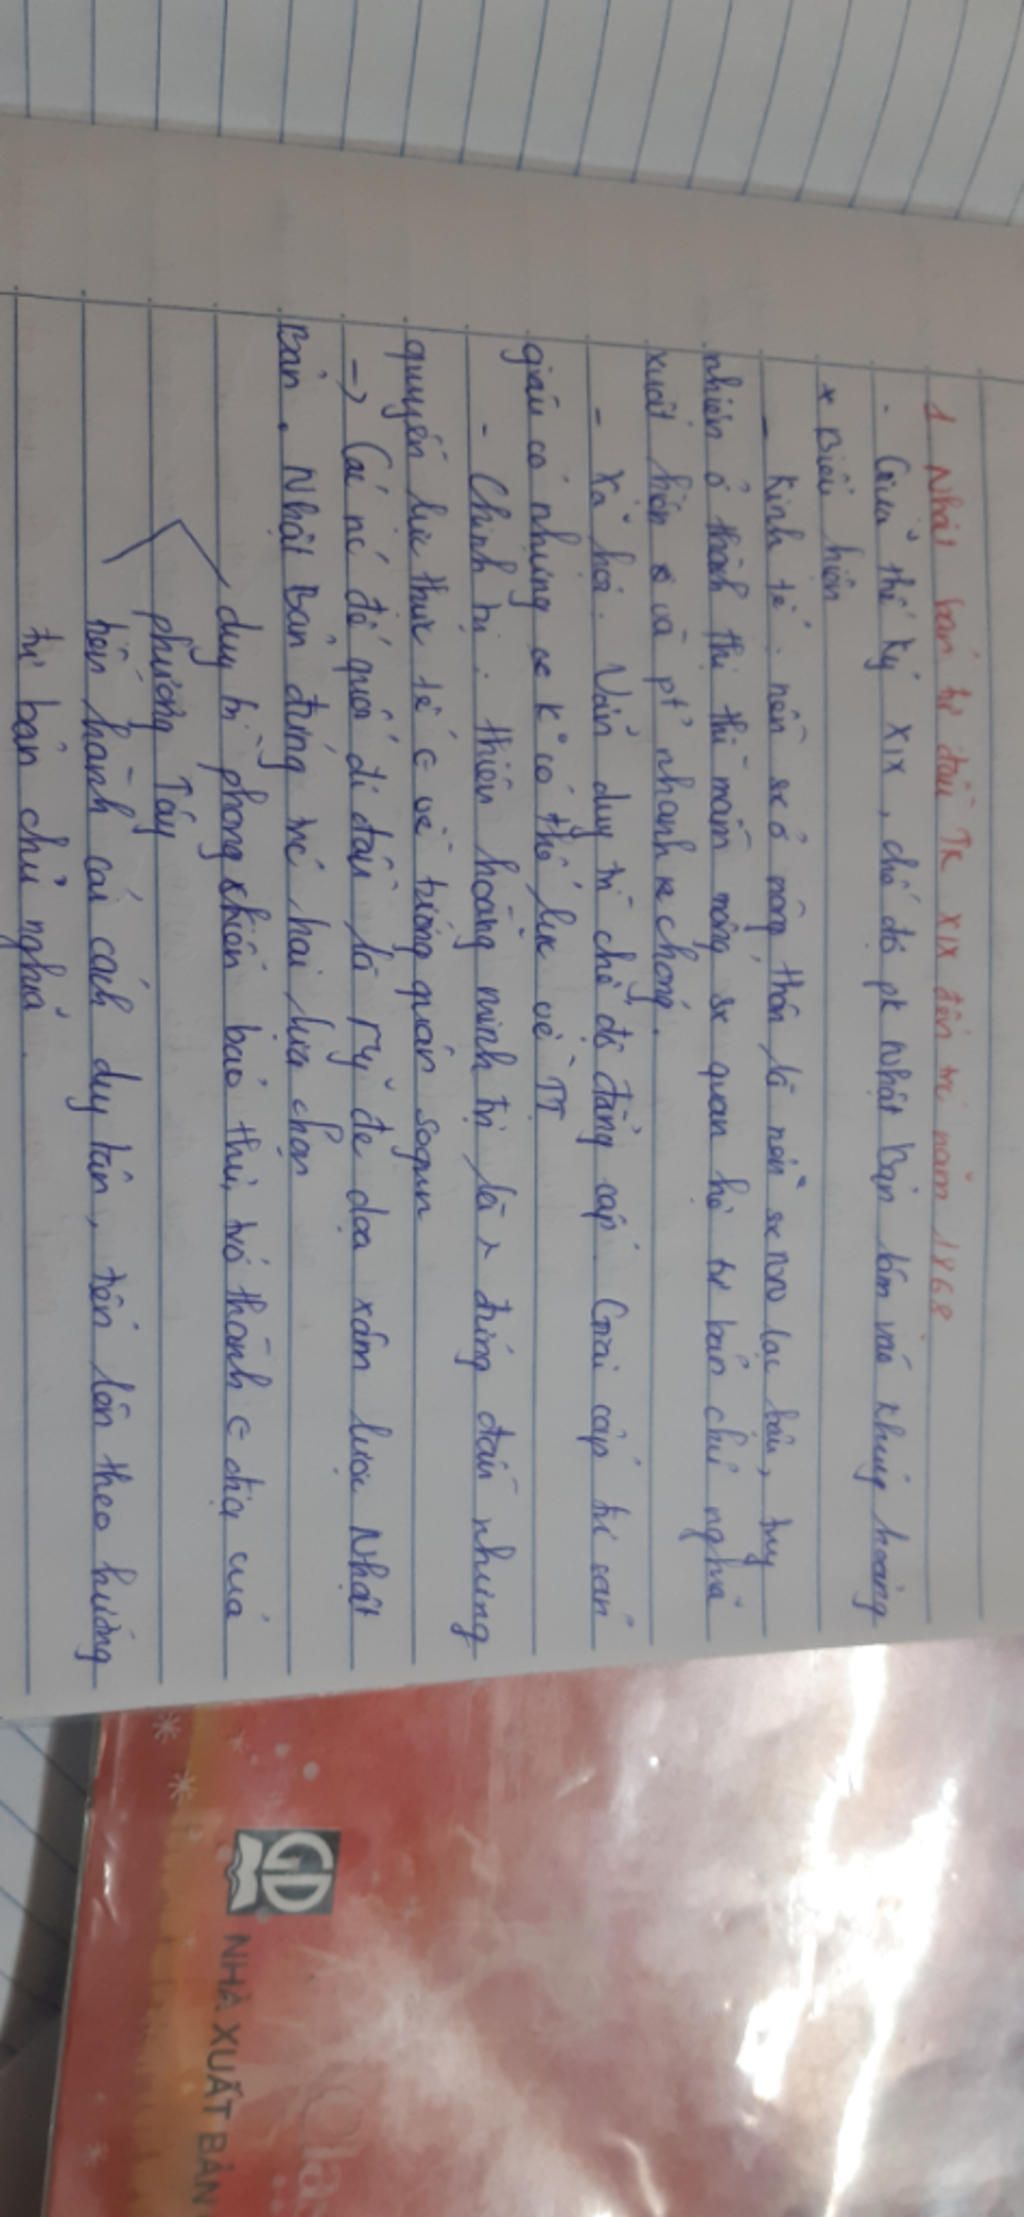 1 Nhật bản từ đầu TK XIX đến trc năm 1868
- Giữa thế kỷ XIX, chế độ pk Nhật Bản lâm vào khủng hoảng
* Biểu hiện
- Kinh tế: nền sx ở nông thôn là nền sx NN lạc hậu, tuy
nhiên ở thành thị thì mầm mống sx quan hệ tư bản chủ nghĩa
xuất hiện và pt nhanh chóng.
- Xã hội: Vẫn duy trì chế độ đẳng cấp. Giai cấp tư sản
giàu có nhưng k có thế lực về TT
- Chính trị: thiên hoàng minh trị là đứng đầu nhưng
quuyền lực thực tế c về tướng quân sogun
-> Các nc đế quốc đi đầu là Mỹ đe dọa xâm lược Nhật
Bản. Nhật Bản đứng trc hai lựa chọn
duy trì phong kiến bảo thủ, trở thành c địa của
phương Tây
tiến hành cải cách duy tân, tiến lên theo hướng
tư bản chủ nghĩa.
GD
NHÀ XUẤT BẢN